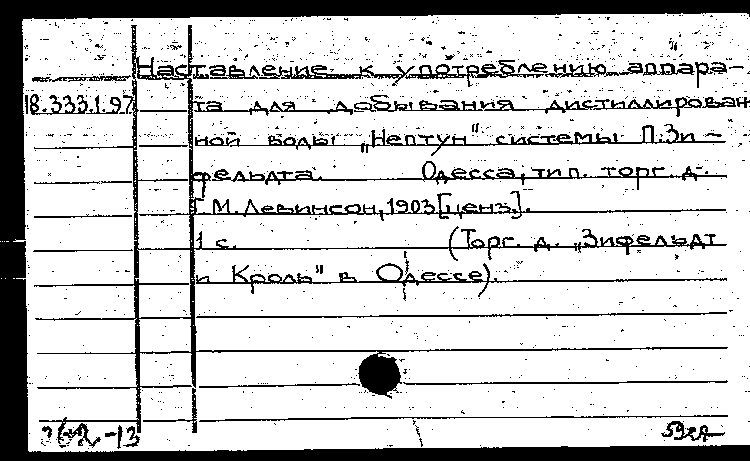 Наставление к употреблению аппара-
18.333.1.97 та для добывания дистиллирован
ной воды „Нептун" системы П. Зи-
фельдта. Одесса, тип. торг. д.
Г. М. Левинсон, 1903 [ценз.].
1 с. (Торг. д. „Зифельдт
и Кроль" в Одессе).
262-13